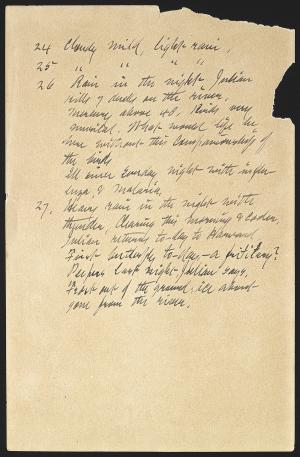 24 Cloudy mild, light rain,
25 " " " "
26 Rain in the night Julian
kills 7 ducks on the river.
Mercury above 40. Birds very
musical. What would life be
here without this companionship of
the birds
Ill ever Sunday night with influ-
enza & malaria.
27. Heavy rain in the night with
thunder, Clearing this morning & colder,
Julian returns to-day to Harvard
First butterfly to-day – a fritilary?
Peepers last night Julian says.
Frost out of the ground; ice about
gone from the river.